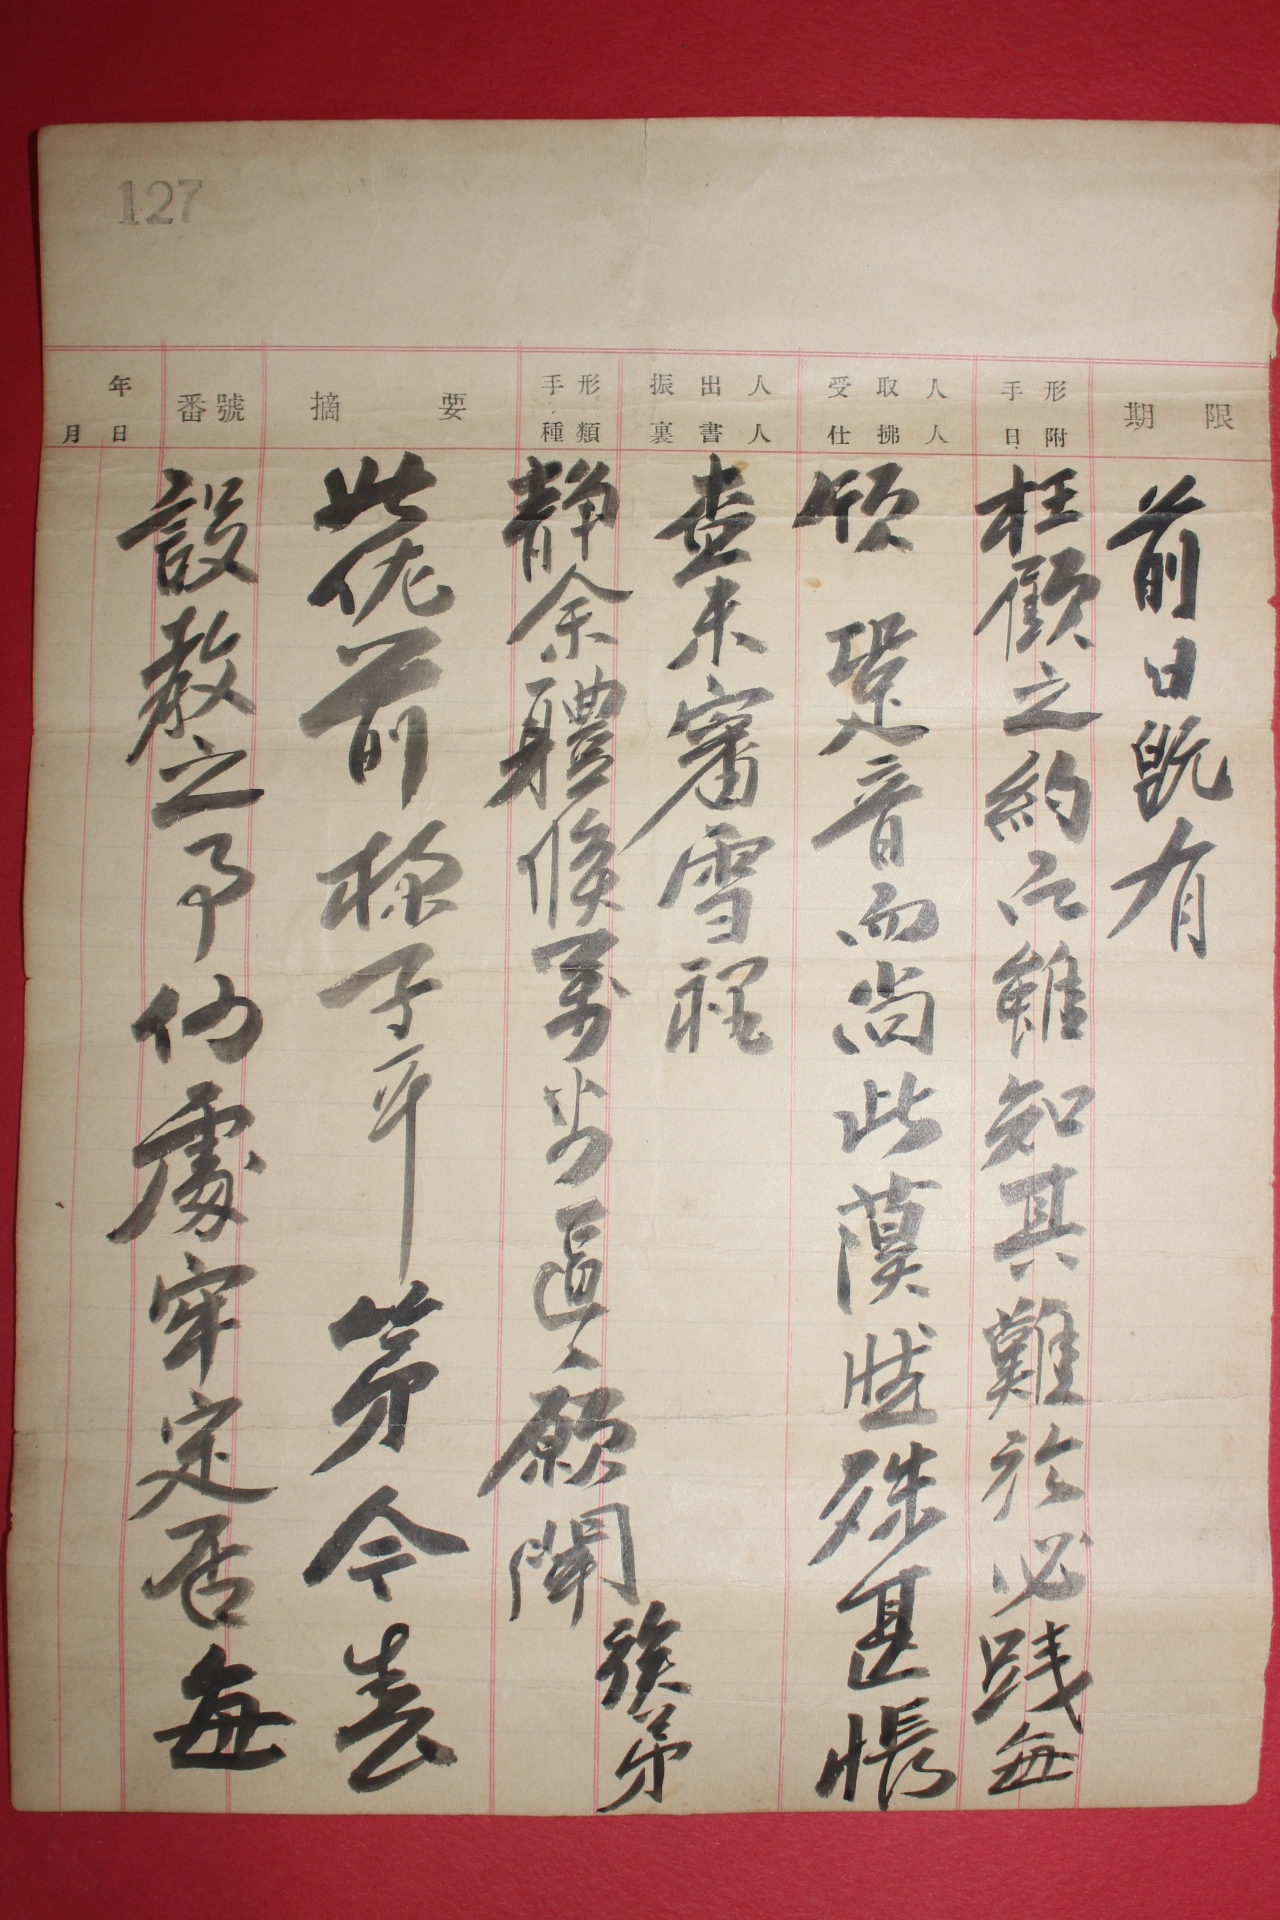 127
期限
手形日附
受取人
仕拂人
振出人
裏書人
手形種類
摘要
番號
年
月日
前日既有
枉顧之約 雖知其難於必踐每
頎 跫音而尚此漠然殊甚悵
未審雪裡
靜余體候萬 願聞
族弟
此依前樣子耳 第今春
設教之 仍處牢定否每